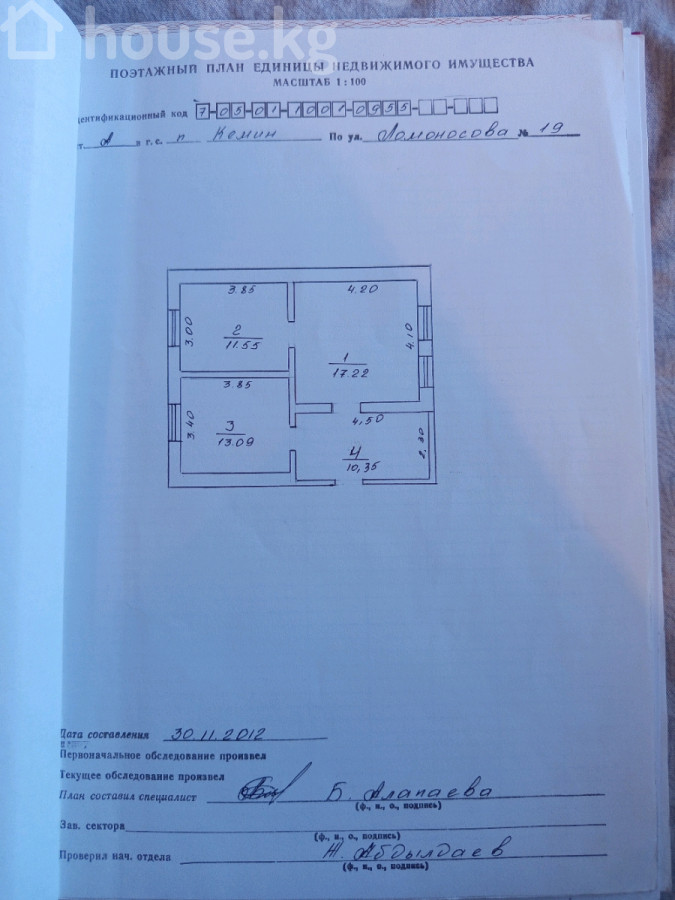 house.kg
ПОЭТАЖНЫЙ ПЛАН ЕДИНИЦЫ НЕДВИЖИМОГО ИМУЩЕСТВА
МАСШТАБ 1:100
дентификационный код 7-05-01-1001-0955
А в г. с. п Кемин По ул. Ломоносова № 19
3.85
4.20
3.00
2
11.55
4.10
1
17.22
3.85
4,50
3.40
3
13.09
4
10,35
2,30
Дата составления 30.11.2012
Первоначальное обследование произвел
Текущее обследование произвел
План составил специалист Б. Алапаева
(ф., и., о., подпись)
Зав. сектора
(ф., и., о., подпись)
Проверил нач. отдела Ж. Абдылдаев
(ф., и., о., подпись)